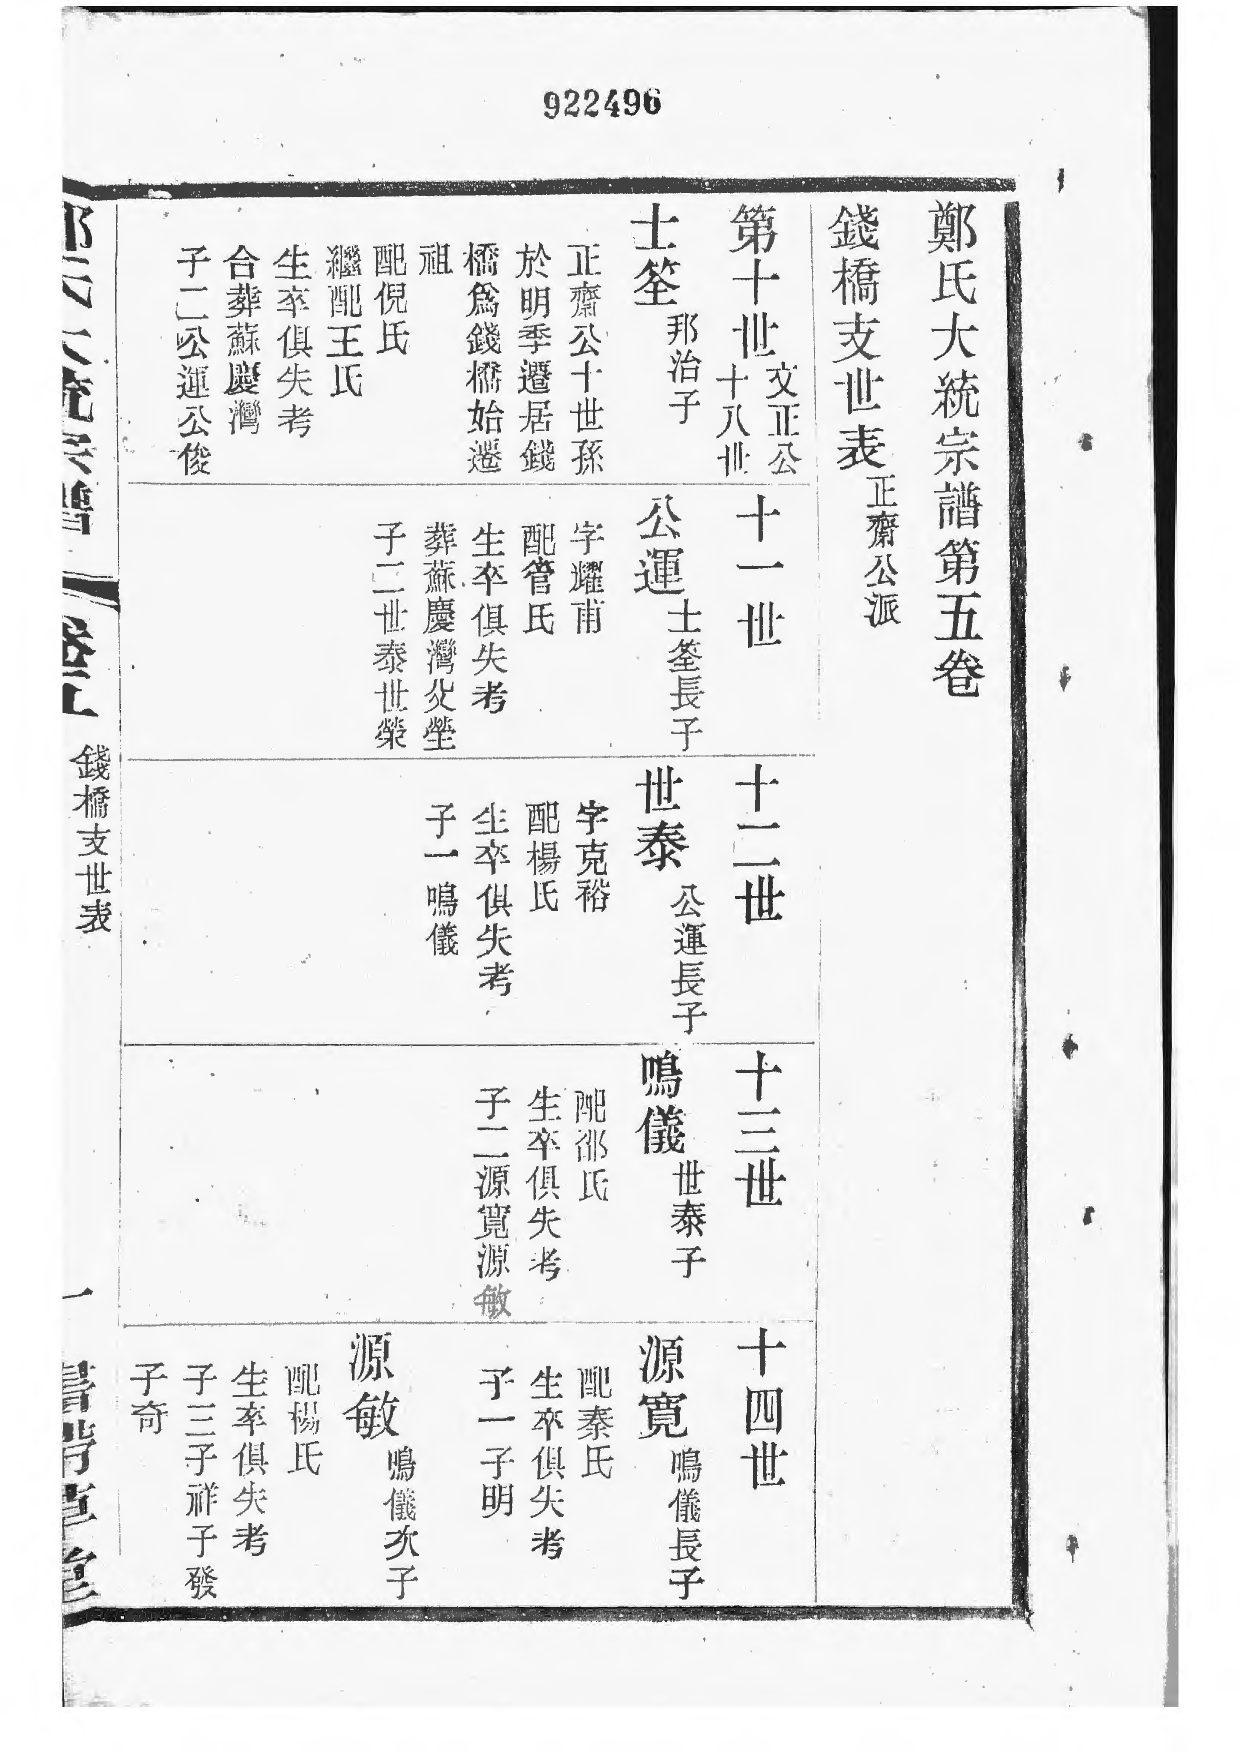 922496
鄭氏大統宗譜第五卷
錢橋支世表 正齋公派
第十世 文正公
十八世
士筌 邦治子
正齋公十世孫
於明季遷居錢
橋爲錢橋始遷
祖
配倪氏
繼配王氏
生卒俱失考
合葬蘇慶灣
子二公運公俊
十一世
公運 士筌長子
字耀甫
配管氏
生卒俱失考
葬蘇慶灣父塋
子二世泰世榮
十二世
世泰 公運長子
字克裕
配楊氏
生卒俱失考
子一鳴儀
十三世
鳴儀 世泰子
配邵氏
生卒俱失考
子二源寬源敏
十四世
源寬 鳴儀長子
配秦氏
生卒俱失考
子一子明
源敏 鳴儀次子
配楊氏
生卒俱失考
子三子祥子發
子奇
鄭氏大統宗譜 卷五 錢橋支世表 一 書帶草堂